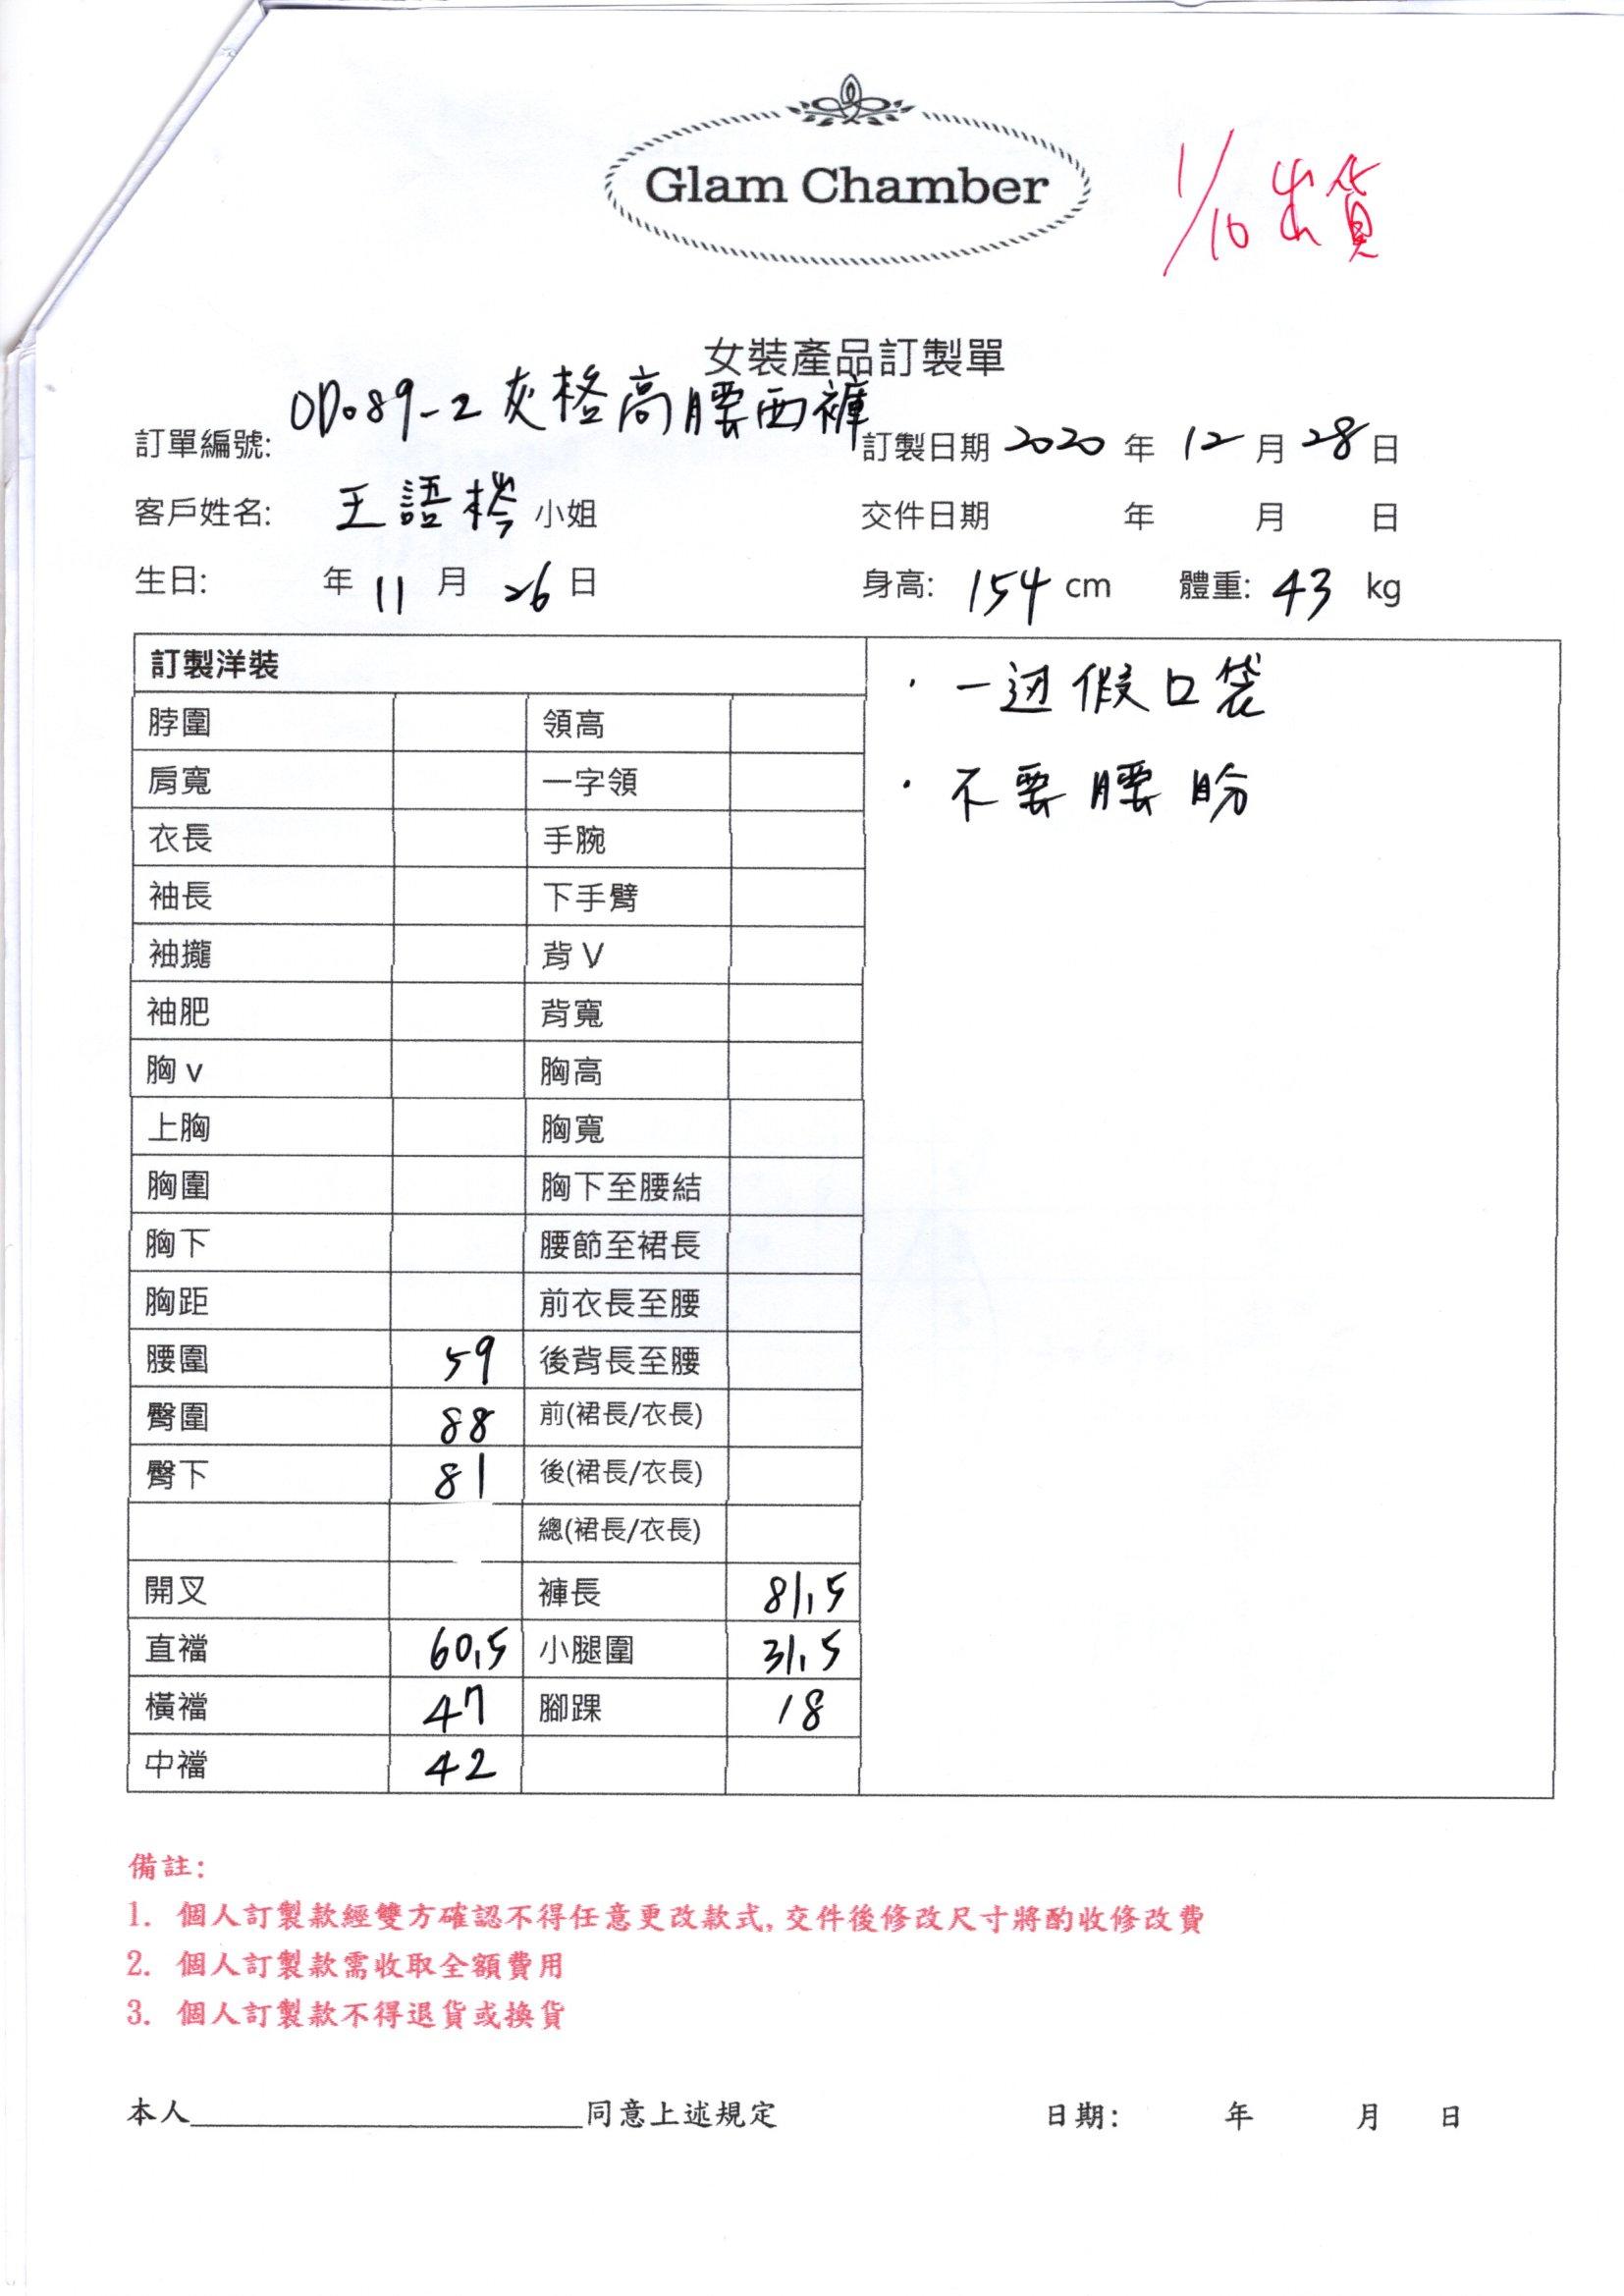 Glam Chamber
1/10 出貨
女裝產品訂製單
訂單編號: OD089-2 灰格高腰西褲 訂製日期 2020 年 12 月 28 日
客戶姓名: 王語梣 小姐 交件日期 年 月 日
生日: 年 11 月 26 日 身高: 154 cm 體重: 43 kg
訂製洋裝
· 一边假口袋
· 不要腰
脖圍 領高
肩寬 一字領
衣長 手腕
袖長 下手臂
袖攏 背 V
袖肥 背寬
胸 v 胸高
上胸 胸寬
胸圍 胸下至腰結
胸下 腰節至裙長
胸距 前衣長至腰
腰圍 59 後背長至腰
臀圍 88 前(裙長/衣長)
臀下 81 後(裙長/衣長)
總(裙長/衣長)
開叉 褲長 81.5
直襠 60.5 小腿圍 31.5
橫襠 47 腳踝 18
中襠 42
備註:
1. 個人訂製款經雙方確認不得任意更改款式, 交件後修改尺寸將酌收修改費
2. 個人訂製款需收取全額費用
3. 個人訂製款不得退貨或換貨
本人____________同意上述規定 日期: 年 月 日